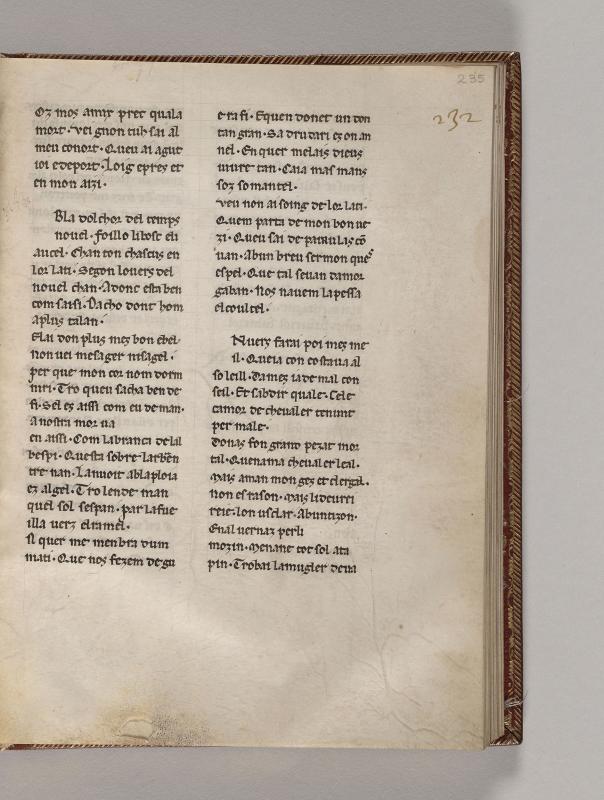 235
232
Oz mos amix prec quala
mort. Vei gnon tuh sai al
meu conort. Queu ai agut
ioi edeport. Loig epres et
en mon aizi.
Bla dolchor del temps
nouel. foillo libosc eli
aucel. Chanton chascus en
lor lati. Segon louers del
nouel chan. Adonc esta ben
com saisi. Dacho dont hom
aplus talan.
Elai don plus mes bon ebel.
non uei mesager nisagel.
per que mon cor nom dorm
niri. Tro queu sacha ben de
fi. Sel es aissi com eu deman.
a nostra mor ua
en aissi. Com labranca delal
bespi. Questa sobre larbe
tre nan. La nuoit ablaploia
ez algel. Tro lende man
quel sol sespan. par la fue
illa uerz elramel.
quer me menbra dum
mati. Que nos fezem de gu
erra fi. E quem donet un don
tan gran. Sa drudari ez on an
nel. En quer melais dieus
uiure tan. Caia mas mans
soz so mantel.
Veu non ai soing de lor lati.
Quem parta de mon bon ue
zi. Queu sai de paraulas co
uan. Abun breu sermon ques
espel. Que tal seuan damor
gaban. Nos nauem la pessa
el coultel.
farai poi mes me
il. Queia con estaua al
soleill. Dames ia de mal con
seil. Et sabdir quale. Cele
camor de cheualer tenunt
per male.
Donas fon gran pezat mor
tal. Quenama cheualer leal.
Mais aman mon gez et clergal.
non es rason. Mais li deurei
reie. lon usclar. Abun tizon.
Enal uernaz perli
mozin. Menane tot sol ata
pin. Trobai la mugler deua